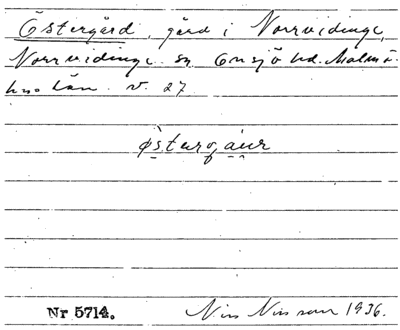 Östergård, gård i Norrvidinge,
Norrvidinge sn Onsjö hd. Malmö-
hus län. v. 27
østurgáur
Nr 5714. Nils Nilsson 1936.